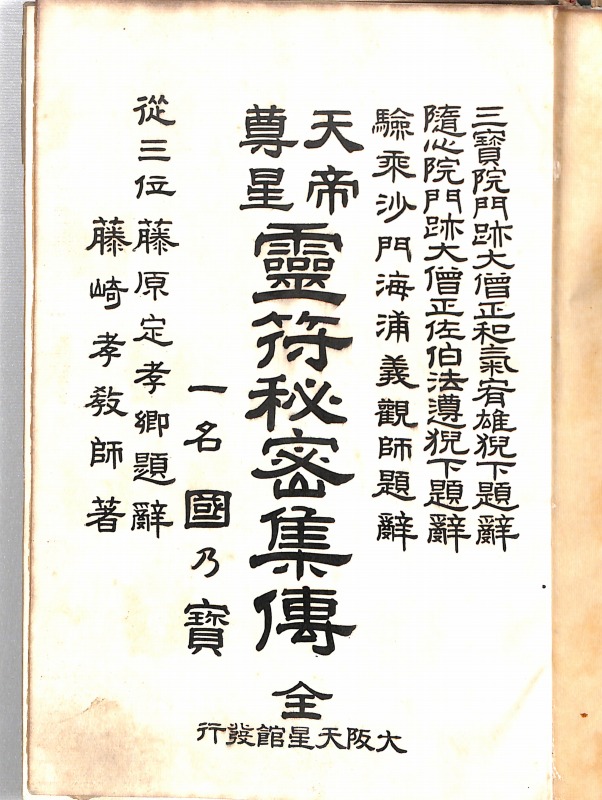 三寶院門跡大僧正和氣宥雄猊下題辭
隨心院門跡大僧正佐伯法遵猊下題辭
驗乘沙門海浦義觀師題辭
天帝
尊星
靈符秘密集傳 全
一名國乃寶
從三位藤原定孝卿題辭
藤崎孝敎師著
大阪天星館發行